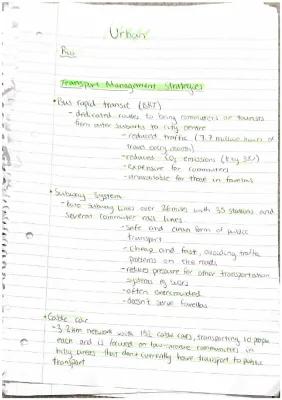 Urban
Rio
Transport Management Strategies
• Bus rapid transit (BRT)
- dedicated routes to bring commuters or tourists
from outer suburbs to city centre
- reduced traffic (7.7 million hours of
travel every month)
- reduced CO2 emissions (by
- expensive for commuters
- unavailable for those in favelas
• Subway System
- two subway lines over 26 miles with 35 stations and
several commuter rail lines
- safe and clean form of public
transport
- cheap and fast, avoiding traffic
problems on the roads
- reduces pressure for other transportation
systems eg buses
- often overcrowded
- doesn't serve favellas
• Cable car
- 3.2km network with 152 cable cars, transporting 10 people
each and is focused on low-income communities in
hilly areas that don't currently have transport to public
transport